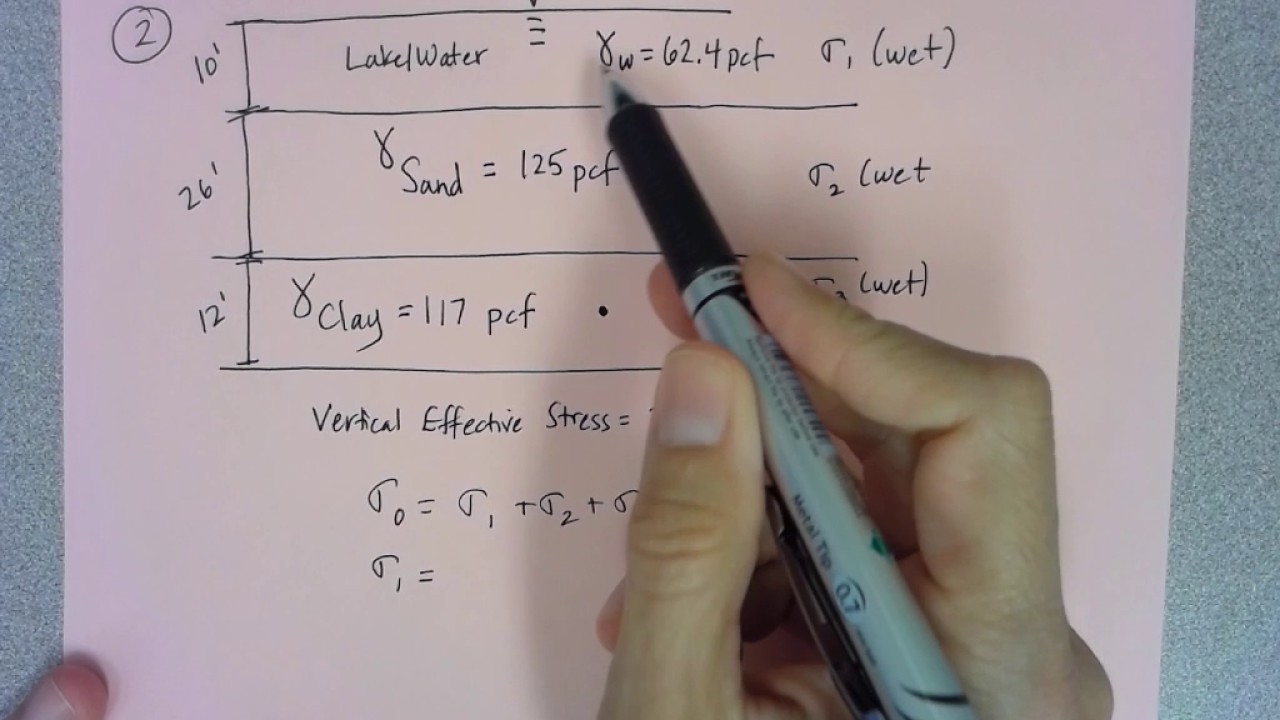 2
10' Lake/Water γw = 62.4 pcf σ1 (wet)
26' γSand = 125 pcf σ2 (wet
12' γClay = 117 pcf σ3 (wet)
Vertical Effective Stress =
σ0 = σ1 + σ2 + σ
σ1 =
Metal Tip 0.7